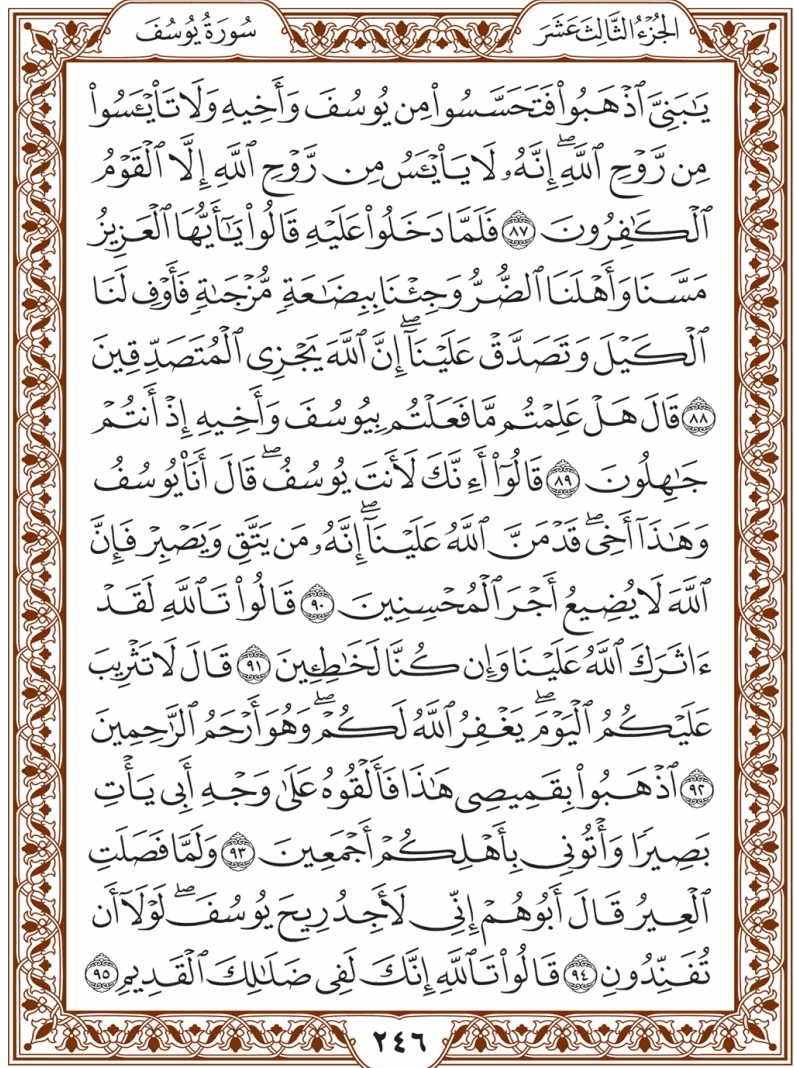 الجُزْءُ الثَّالِثَ عَشَرَ
سُورَةُ يُوسُفَ
يَـٰبَنِىَّ ٱذْهَبُوا۟ فَتَحَسَّسُوا۟ مِن يُوسُفَ وَأَخِيهِ وَلَا تَا۟يْـَٔسُوا۟
مِن رَّوْحِ ٱللَّهِ ۖ إِنَّهُۥ لَا يَا۟يْـَٔسُ مِن رَّوْحِ ٱللَّهِ إِلَّا ٱلْقَوْمُ
ٱلْكَـٰفِرُونَ ٨٧ فَلَمَّا دَخَلُوا۟ عَلَيْهِ قَالُوا۟ يَـٰٓأَيُّهَا ٱلْعَزِيزُ
مَسَّنَا وَأَهْلَنَا ٱلضُّرُّ وَجِئْنَا بِبِضَـٰعَةٍ مُّزْجَىٰةٍ فَأَوْفِ لَنَا
ٱلْكَيْلَ وَتَصَدَّقْ عَلَيْنَآ ۖ إِنَّ ٱللَّهَ يَجْزِى ٱلْمُتَصَدِّقِينَ
٨٨ قَالَ هَلْ عَلِمْتُم مَّا فَعَلْتُم بِيُوسُفَ وَأَخِيهِ إِذْ أَنتُمْ
جَـٰهِلُونَ ٨٩ قَالُوٓا۟ أَءِنَّكَ لَأَنتَ يُوسُفُ ۖ قَالَ أَنَا۠ يُوسُفُ
وَهَـٰذَآ أَخِى ۖ قَدْ مَنَّ ٱللَّهُ عَلَيْنَآ ۖ إِنَّهُۥ مَن يَتَّقِ وَيَصْبِرْ فَإِنَّ
ٱللَّهَ لَا يُضِيعُ أَجْرَ ٱلْمُحْسِنِينَ ٩٠ قَالُوا۟ تَٱللَّهِ لَقَدْ
ءَاثَرَكَ ٱللَّهُ عَلَيْنَا وَإِن كُنَّا لَخَـٰطِـِٔينَ ٩١ قَالَ لَا تَثْرِيبَ
عَلَيْكُمُ ٱلْيَوْمَ ۖ يَغْفِرُ ٱللَّهُ لَكُمْ ۖ وَهُوَ أَرْحَمُ ٱلرَّٰحِمِينَ
٩٢ ٱذْهَبُوا۟ بِقَمِيصِى هَـٰذَا فَأَلْقُوهُ عَلَىٰ وَجْهِ أَبِى يَأْتِ
بَصِيرًا وَأْتُونِى بِأَهْلِكُمْ أَجْمَعِينَ ٩٣ وَلَمَّا فَصَلَتِ
ٱلْعِيرُ قَالَ أَبُوهُمْ إِنِّى لَأَجِدُ رِيحَ يُوسُفَ ۖ لَوْلَآ أَن
تُفَنِّدُونِ ٩٤ قَالُوا۟ تَٱللَّهِ إِنَّكَ لَفِى ضَلَـٰلِكَ ٱلْقَدِيمِ ٩٥
٢٤٦